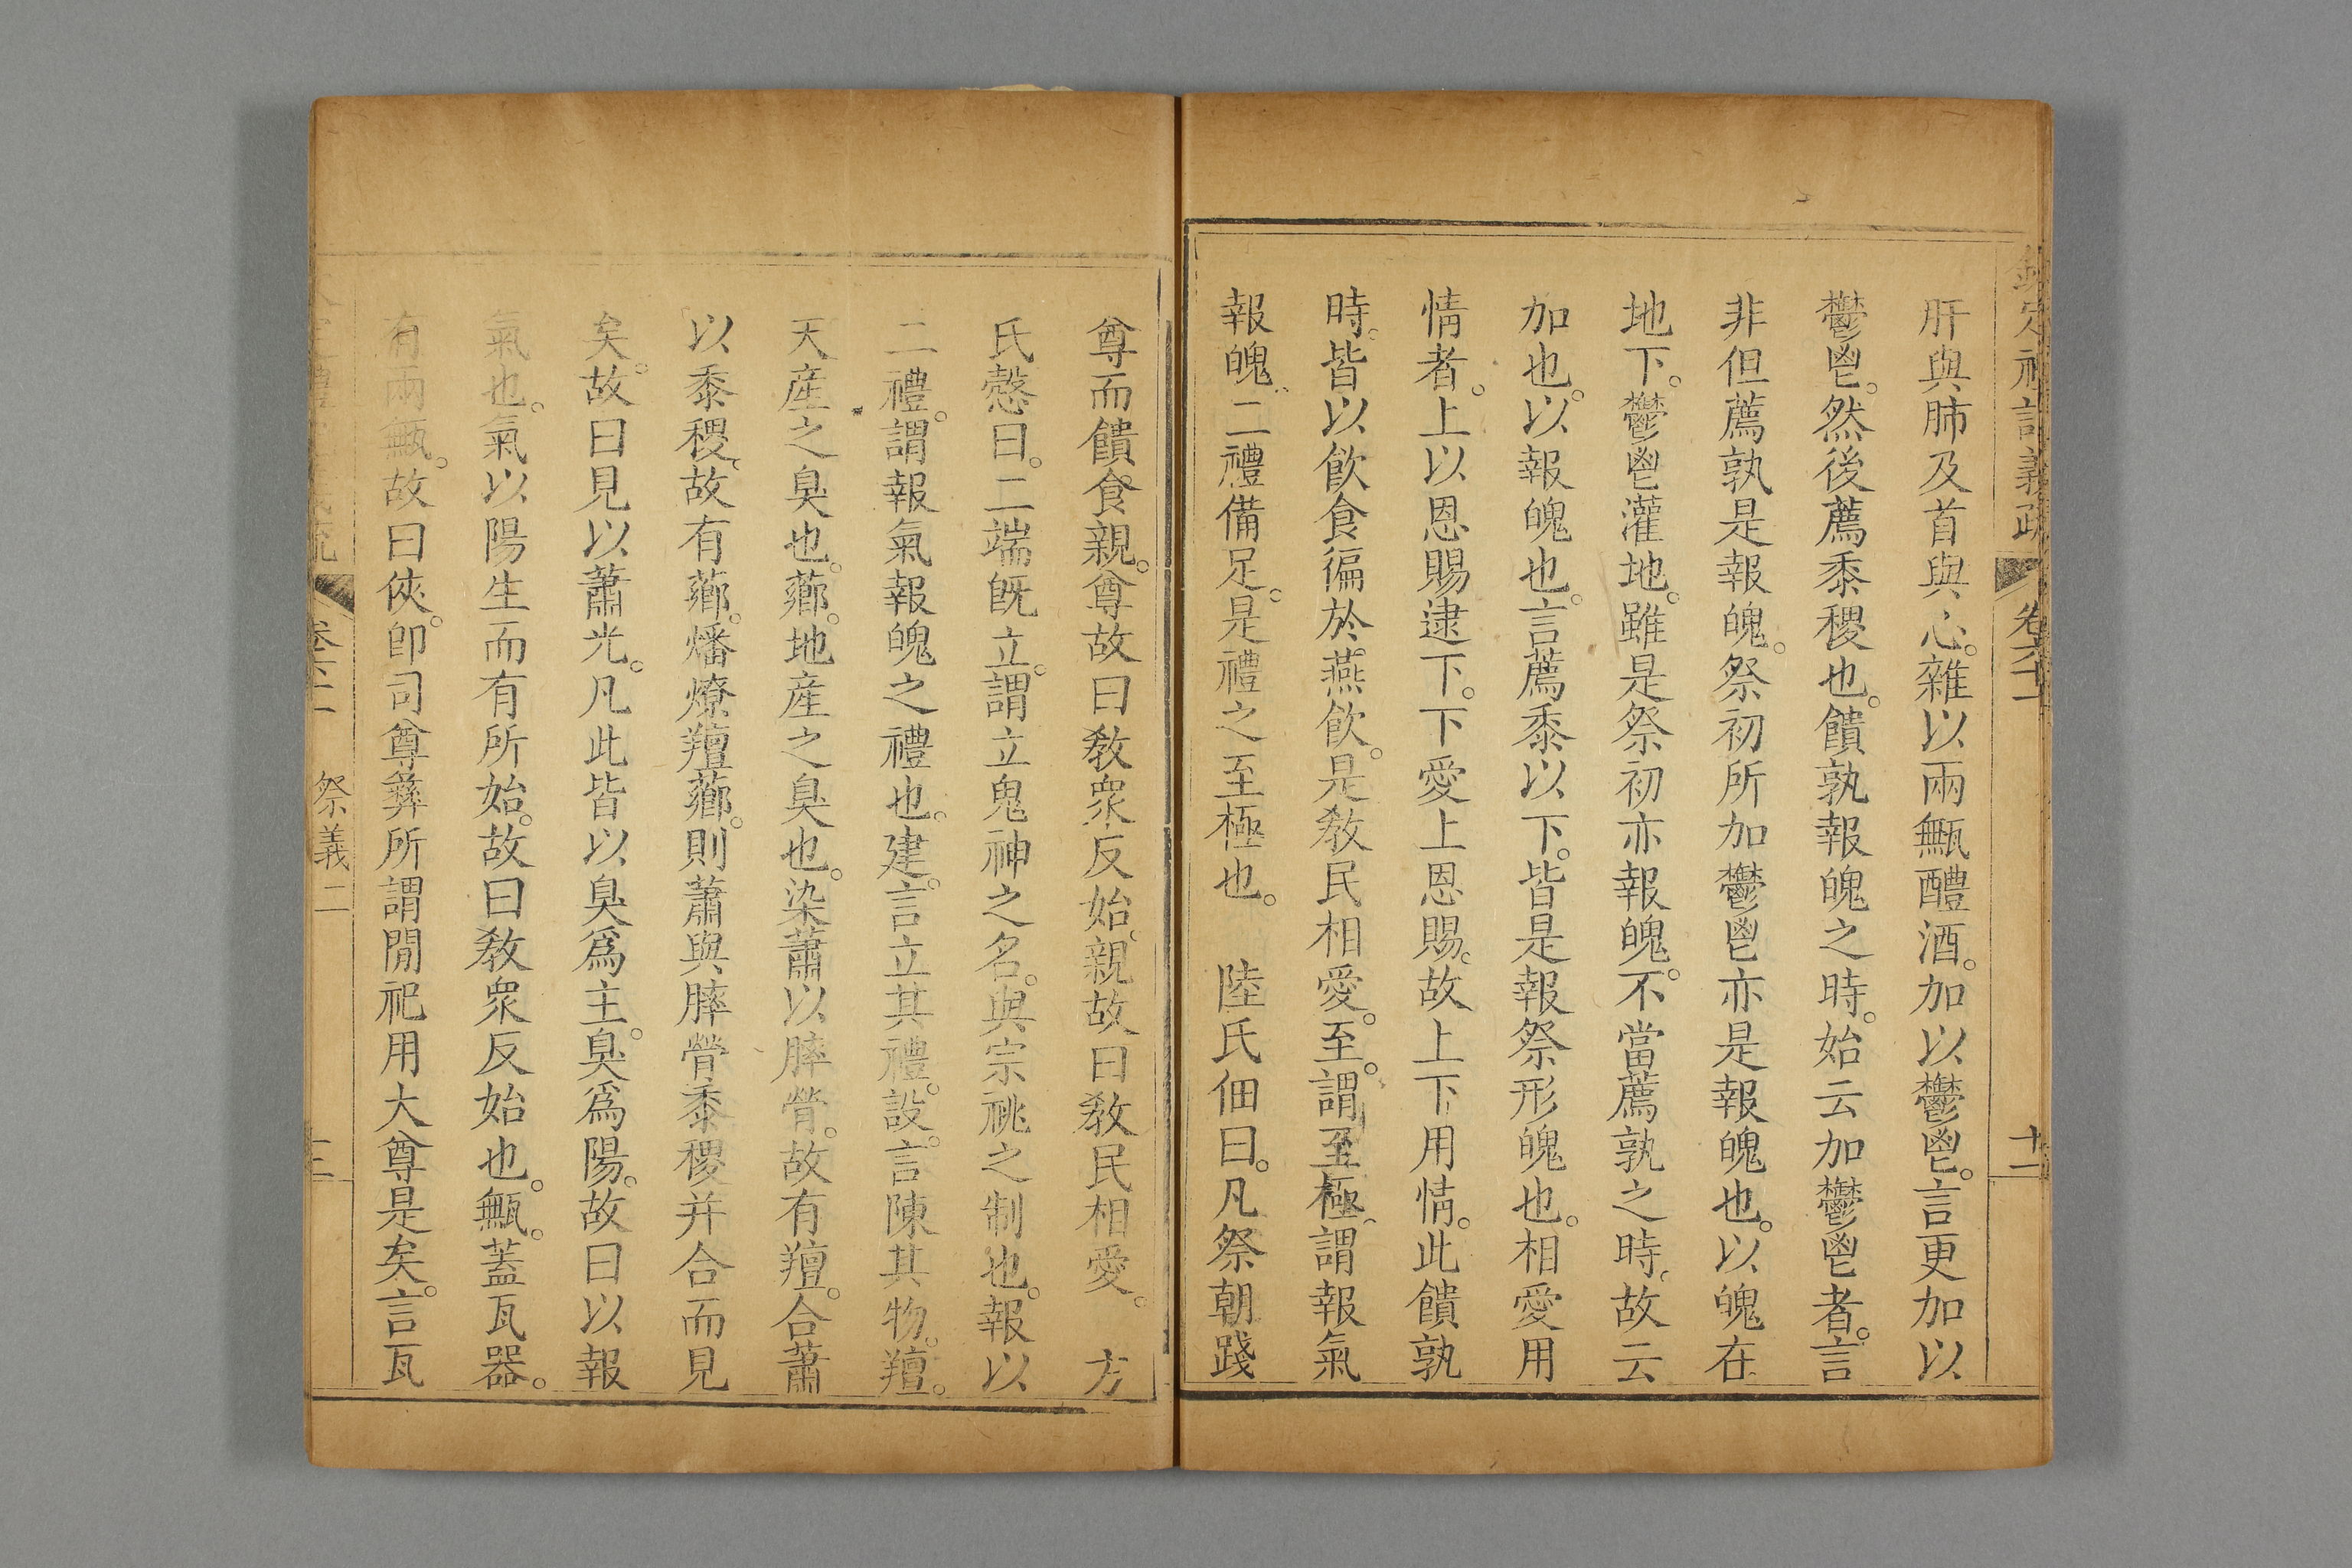 欽定禮記義疏 卷六十一 十二
肝與肺及首與心。雜以兩甒醴酒。加以鬱鬯。言更加以
鬱鬯。然後薦黍稷也。饋孰報魄之時。始云加鬱鬯者。言
非但薦孰是報魄。祭初所加鬱鬯亦是報魄也。以魄在
地下。鬱鬯灌地。雖是祭初亦報魄。不當薦孰之時、故云
加也。以報魄也。言薦黍以下。皆是報祭形魄也。相愛用
情者。上以恩賜逮下。下愛上恩賜。故上下用情。此饋孰
時。皆以飮食徧於燕飮。是敎民相愛。至。謂至極、謂報氣
報魄、二禮備足。是禮之至極也。 陸氏佃曰。凡祭朝踐
尊而饋食親。尊故曰敎衆反始。親故曰敎民相愛。 方
氏慤曰。二端旣立。謂立鬼神之名。與宗祧之制也。報以
二禮。謂報氣報魄之禮也。建。言立其禮。設。言陳其物。羶。
天產之臭也。薌。地產之臭也。染蕭以膟膋。故有羶。合蕭
以黍稷、故有薌。燔燎羶薌。則蕭與膟膋黍稷并合而見
矣。故曰見以蕭光。凡此皆以臭爲主。臭爲陽。故曰以報
氣也。氣以陽生而有所始。故曰敎衆反始也。甒。蓋瓦器。
有兩甒。故曰俠。卽司尊彝所謂閒祀用大尊是矣。言瓦
祭義二